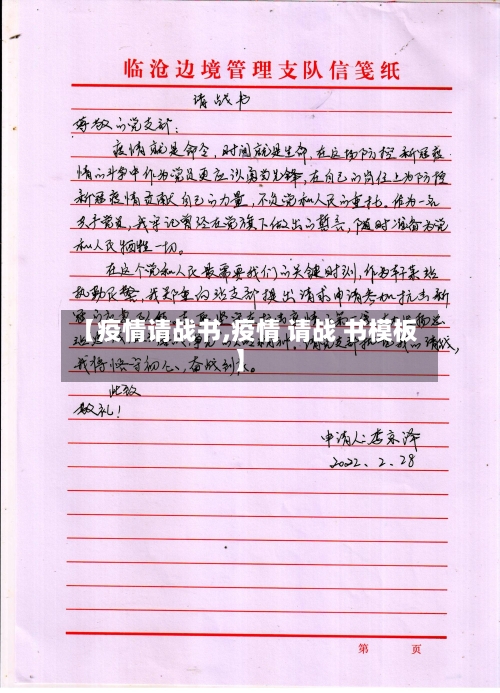 临沧边境管理支队信笺纸
请战书
尊敬的党支部：
疫情就是命令，时间就是生命，在这场防控新冠疫
情的斗争中作为党员更应该勇当先锋，在自己的岗位上为防控
新冠疫情贡献自己的力量，不负党和人民的重托。作为一名
共产党员，我牢记曾经在党旗下做出的誓言，随时准备为党
和人民牺牲一切。
在这个党和人民最需要我们的关键时刻，作为
执勤民警，我郑重的向支部提出请求申请参加抗击新
【疫情请战书,疫情 请战 书模板
】
我将恪守初心，奋战到底。
此致
敬礼！
申请人：李京泽
2022、2、28
第 页